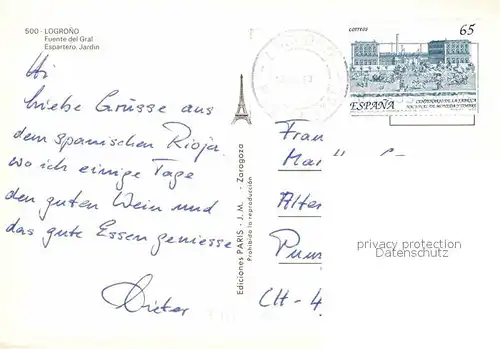 500 - LOGROÑO
Fuente del Gral
Espartero. Jardin
Hi
Liebe Grüsse aus
dem spanischen Rioja.
wo ich einige Tage
den guten Wein und
das gute Essen geniesse
Dieter
Ediciones PARIS - J. M. - Zaragoza
Prohibida la reproducción
correos
65
ESPAÑA
CENTENARIO DE LA FABRICA
NACIONAL DE MONEDA Y TIMBRE
Frau
Mar
Alter
CH-4
privacy protection
Datenschutz